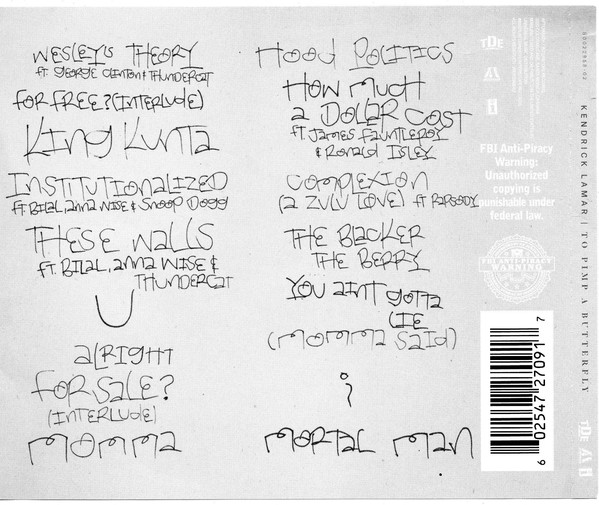 WESLEY'S THEORY
ft. GEORGE CLINTON & THUNDERCAT
FOR FREE? (INTERLUDE)
KING KUNTA
INSTITUTIONALIZED
ft. BILAL, anna WISE & Snoop DOGG
THESE WALLS
ft. BILAL, anna WISE &
THUNDERCAT
U
alRIGHT
FOR SALE?
(INTERLUDE)
momma
HOOD POLITICS
HOW mucH
a DOLLAR COST
ft. James FauntLEROY
& Ronald ISLEY
COMPLEXION
(a ZULU LOVE) ft. RAPSODY
THE BLacKER
THE BERRY
YOU aint gotta
LIE
(momma SaID)
i
moRTaL man
TDE
FBI Anti-Piracy
Warning:
Unauthorized
copying is
punishable under
federal law.
FBI ANTI-PIRACY
WARNING
6 02547 27091 7
B0022958-02
KENDRICK LAMAR | TO PIMP A BUTTERFLY
TDE